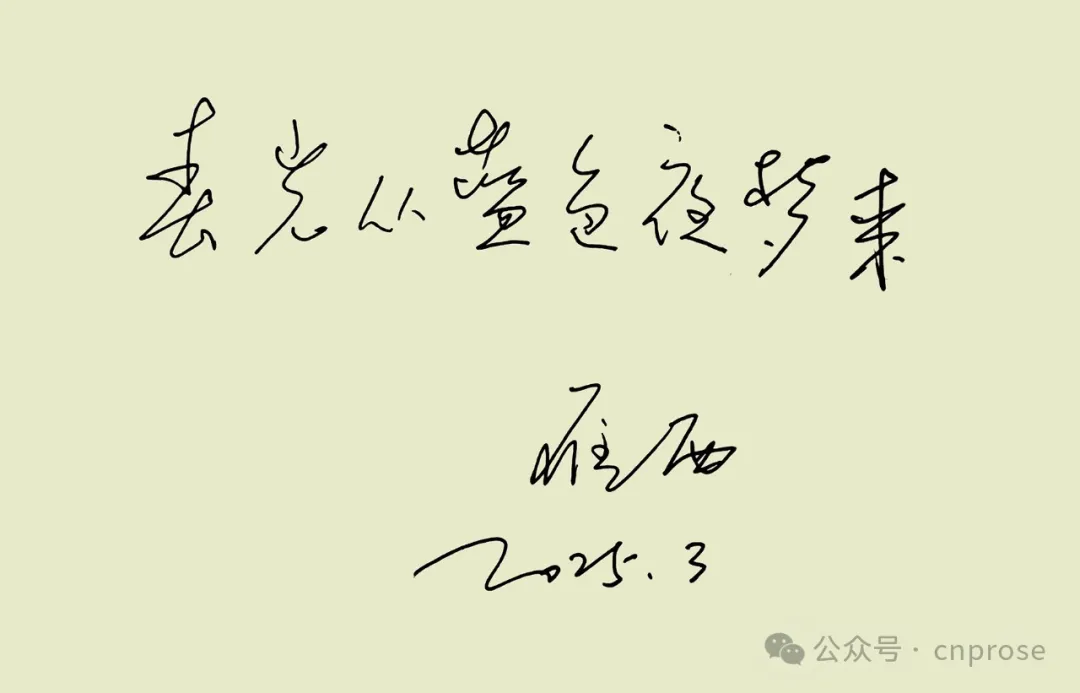 春光从蓝色夜梦来
雁西
2025.3
公众号·cnprose